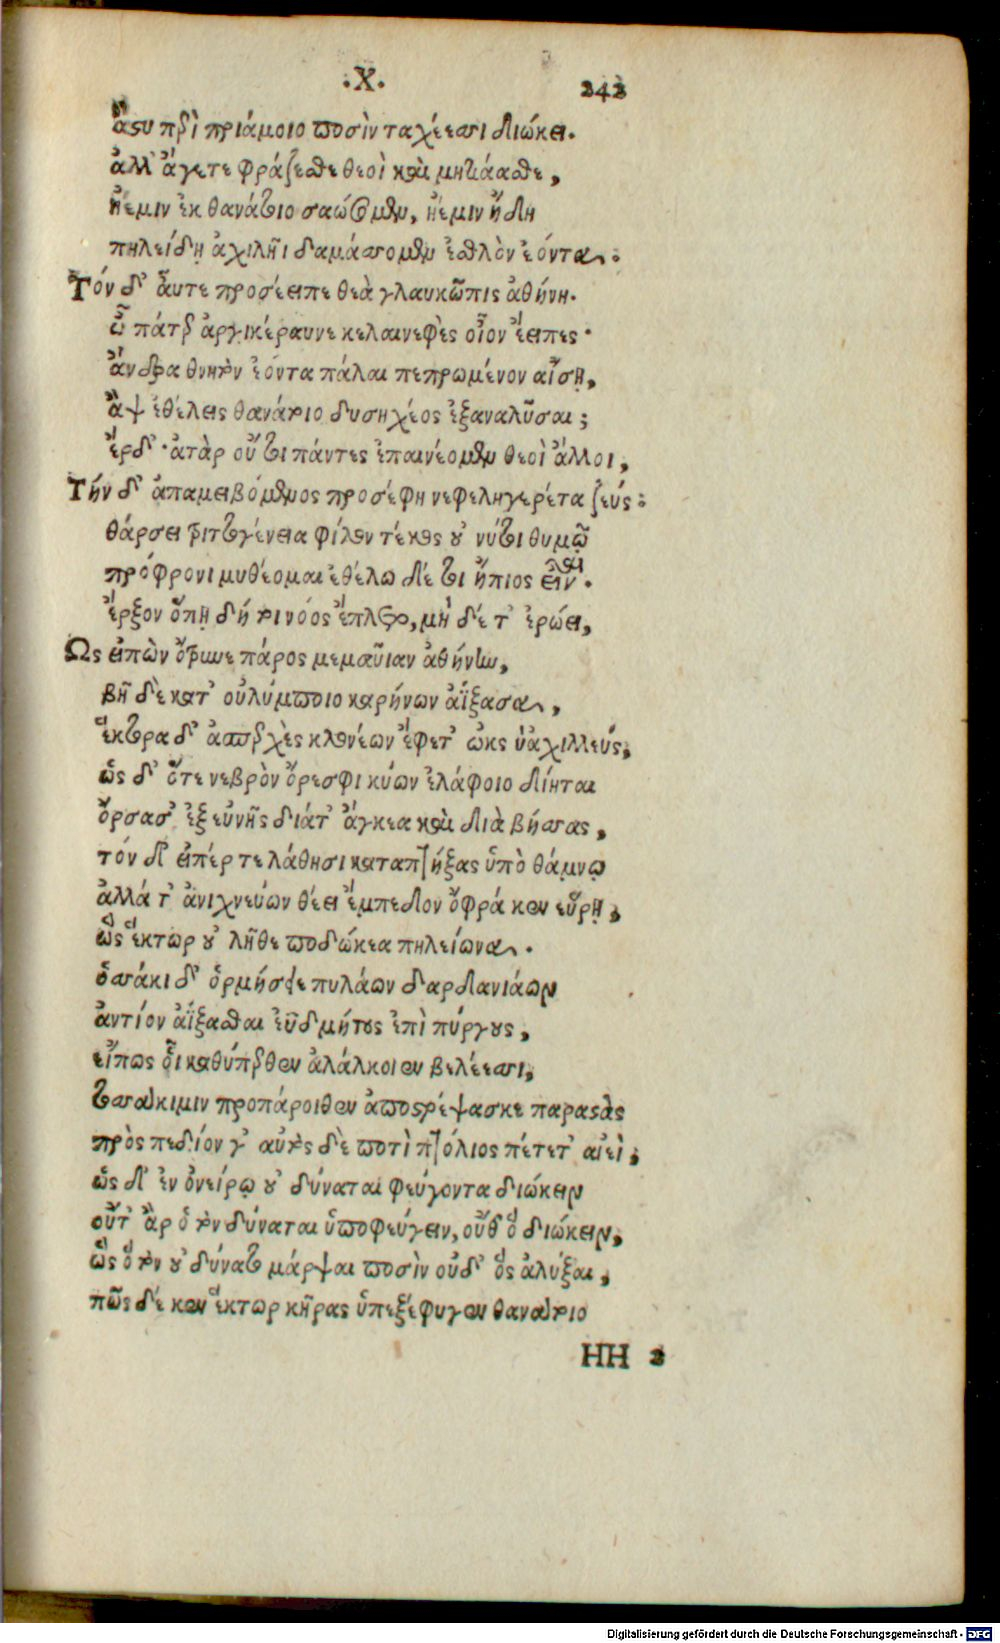 .Χ. 242
ἄστυ περὶ πριάμοιο ποσὶν ταχέεσσι διώκει.
ἀλλ' ἄγετε φράζεσθε θεοὶ καὶ μητιάασθε,
ἠέμιν ἐκ θανάτοιο σαώσομεν, ἠέμιν ἤδη
πηλείδῃ ἀχιλῆϊ δαμάσσομεν ἐσθλὸν ἐόντα.
Τόν δ' αὖτε προσέειπε θεὰ γλαυκῶπις ἀθήνη.
ὦ πάτερ ἀργικέραυνε κελαινεφὲς οἷον ἔειπες·
ἄνδρα θνητὸν ἐόντα πάλαι πεπρωμένον αἴσῃ,
ἂψ ἐθέλεις θανάτοιο δυσηχέος ἐξαναλῦσαι;
ἔρδ'· ἀτὰρ οὔ τοι πάντες ἐπαινέομεν θεοὶ ἄλλοι,
Τήν δ' ἀπαμειβόμενος προσέφη νεφεληγερέτα ζεύς:
θάρσει τριτογένεια φίλον τέκος οὔ νύ τοι θυμῷ
πρόφρονι μυθέομαι ἐθέλω δέ τοι ἤπιος εἶναι.
ἔρξον ὅπῃ δή τοι νόος ἔπλετο, μὴ δέ τ' ἐρώει,
Ως εἰπὼν ὄτρυνε πάρος μεμαῦιαν ἀθήνην,
βῆ δὲ κατ' οὐλύμποιο καρήνων ἀΐξασα,
ἕκτορα δ' ἀσπερχὲς κλονέων ἔφετ' ὠκὺς ἀχιλλεύς,
ὡς δ' ὅτε νεβρὸν ὄρεσφι κύων ἐλάφοιο δίηται
ὄρσας ἐξ εὐνῆς διάτ' ἄγκεα καὶ διὰ βήσσας,
τόν δ' εἰπέρ τε λάθησι καταπτήξας ὑπὸ θάμνῳ
ἀλλά τ' ἀνιχνεύων θέει ἔμπεδον ὄφρά κεν εὕρῃ,
ὣς ἕκτωρ οὐ λῆθε ποδώκεα πηλείωνα.
ὁσσάκι δ' ὁρμήσειε πυλάων δαρδανιάων
ἀντίον ἀΐξασθαι ἐϋδμήτους ἐπὶ πύργους,
εἴπως οἷ καθύπερθεν ἀλάλκοιεν βελέεσσι,
τοσσάκι μιν προπάροιθεν ἀποστρέψασκε παραστὰς
πρὸς πεδίον γ' αὐτὸς δὲ ποτὶ πτόλιος πέτετ' αἰεὶ,
ὡς δ' ἐν ὀνείρῳ οὐ δύναται φεύγοντα διώκειν
οὔτ' ἂρ ὁ τὸν δύναται ὑποφεύγειν, οὔθ' ὁ διώκειν,
ὣς ὁ τὸν οὐ δύνατο μάρψαι ποσὶν οὐδ' ὃς ἀλύξαι,
πῶς δέ κεν ἕκτωρ κῆρας ὑπεξέφυγεν θανάτοιο
HH 2
Digitalisierung gefördert durch die Deutsche Forschungsgemeinschaft - DFG